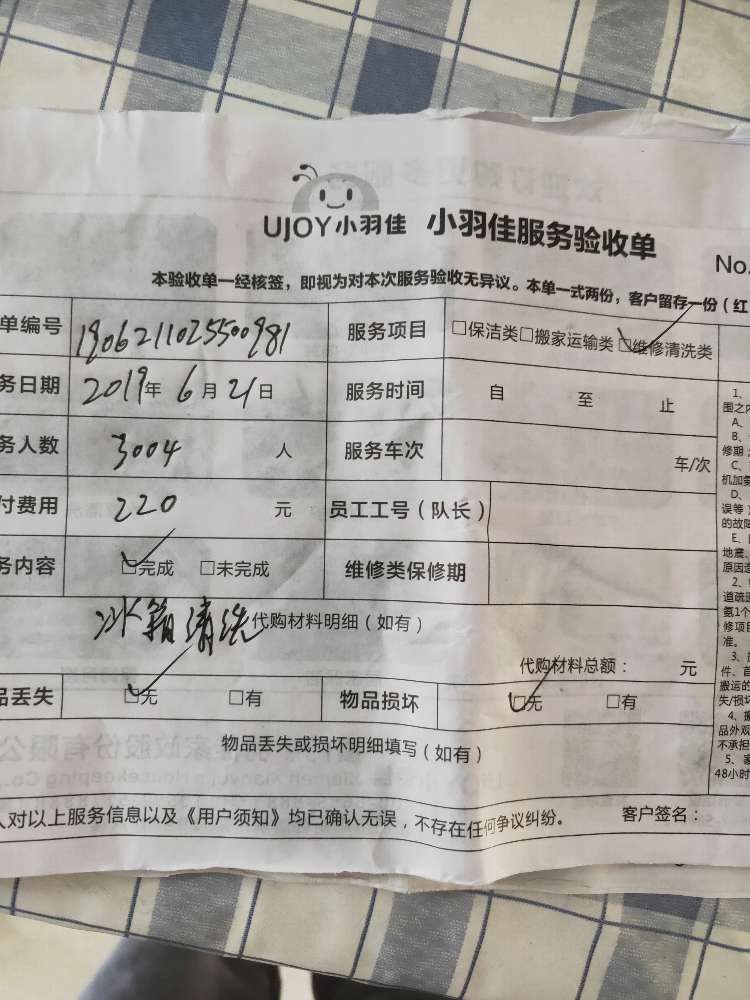 UJOY小羽佳 小羽佳服务验收单
No.
本验收单一经核签，即视为对本次服务验收无异议。本单一式两份，客户留存一份（红
单编号 1906211025500981 服务项目 □保洁类□搬家运输类□维修清洗类
务日期 2019年 6月21日 服务时间 自 至 止
务人数 3004 人 服务车次 车/次
付费用 220 元 员工工号（队长）
务内容 □完成 □未完成 维修类保修期
冰箱清洗 代购材料明细（如有）
代购材料总额： 元
品丢失 □无 □有 物品损坏 □无 □有
物品丢失或损坏明细填写（如有）
人对以上服务信息以及《用户须知》均已确认无误，不存在任何争议纠纷。 客户签名：
1、
围之内
A、
B、
修期
C、
机加氨
D、
误等
的故障
E、
地震、
原因造
2、
道疏通
氨1个
修项目
准。
3、
件、首
搬运的
失/损坏
4、搬
品外观
不承担
5、家
48小时